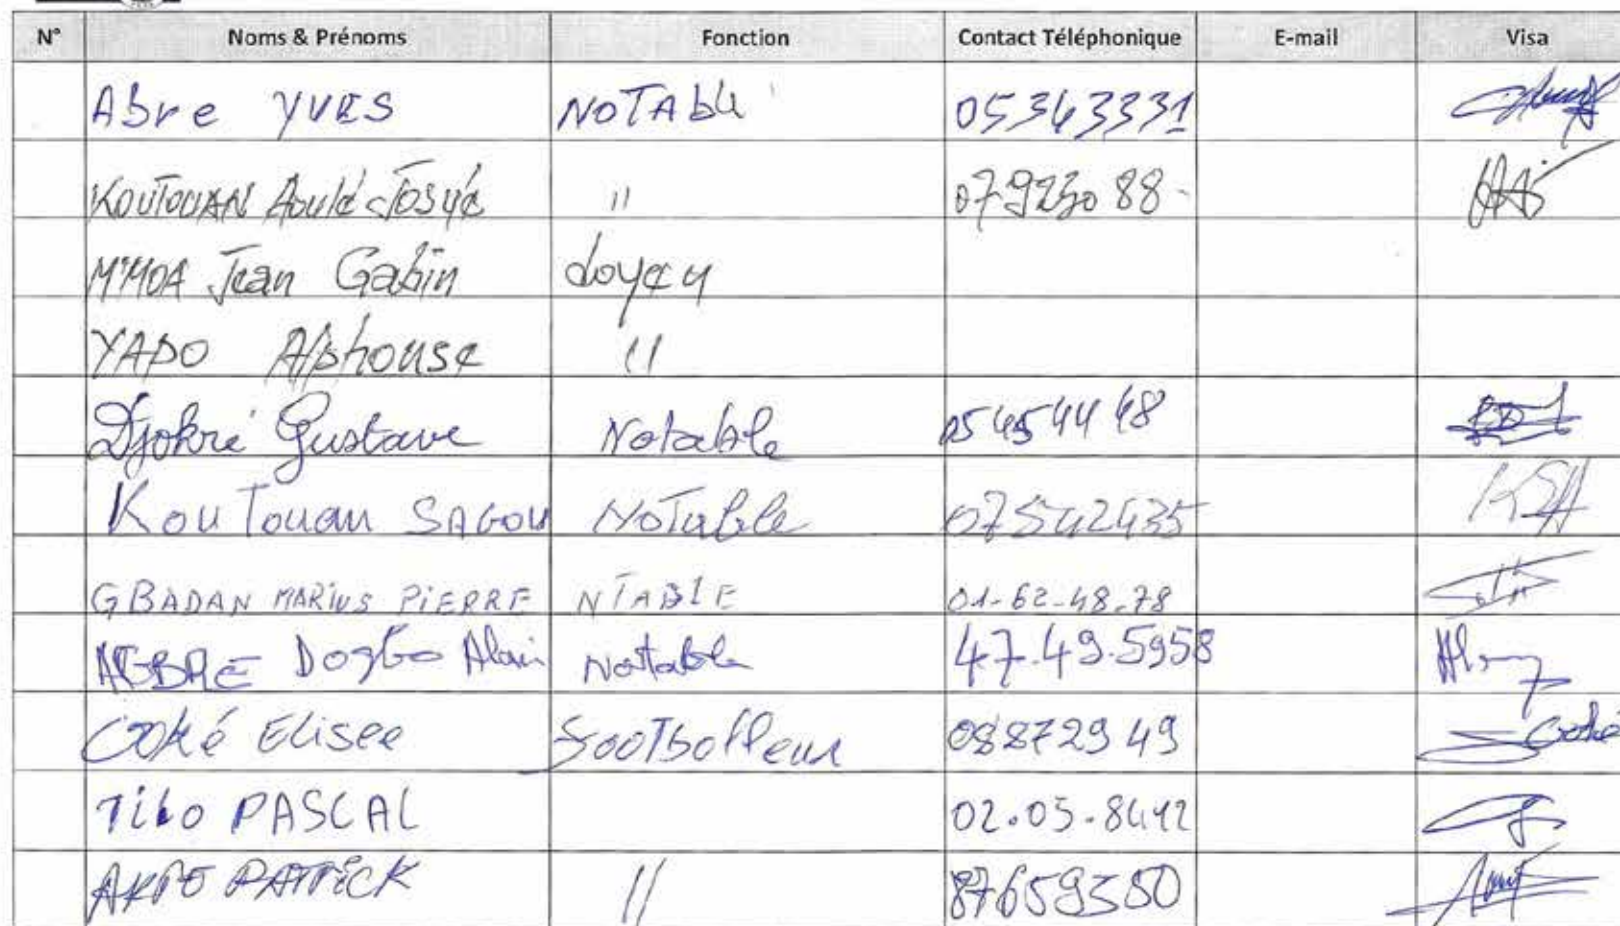 N° Noms & Prénoms Fonction Contact Téléphonique E-mail Visa
Abre YVES NOTAble 05343331
KOUTOUAN Aoulé Josué " 07923088
M'MOA Jean Gabin doyen
YAPO Alphonse "
Djokré Gustave Notable 05454448
KouTouan SAGOU NoTable 07542435
GBADAN MARIUS PIERRE NTABLE 01-62-48-78
AGBRE Dogbo Alain Notable 47.49.5958
Coké Elisee FooTbolleur 08872949 Coké
PASCAL 02.05.8442
PATRICK " 87659350